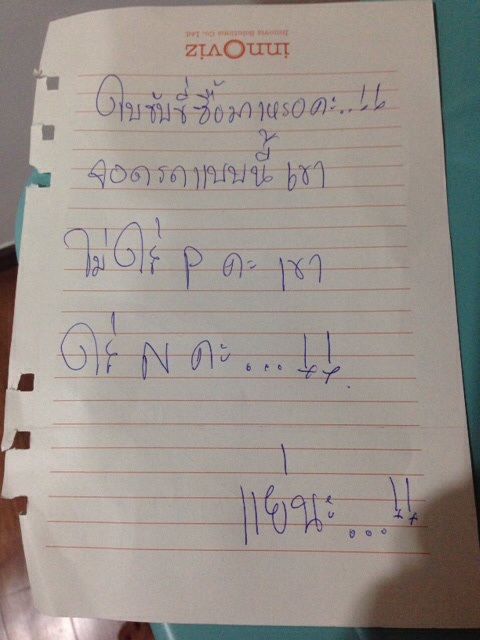 innoviz
Innoviz Solutions Co., Ltd.
ใบขับขี่ซื้อมาเหรอคะ..!!
จอดรถแบบนี้ เขา
ไม่ใส่ P คะ เขา
ใส่ N คะ ... !!
แย่นะ ... !!